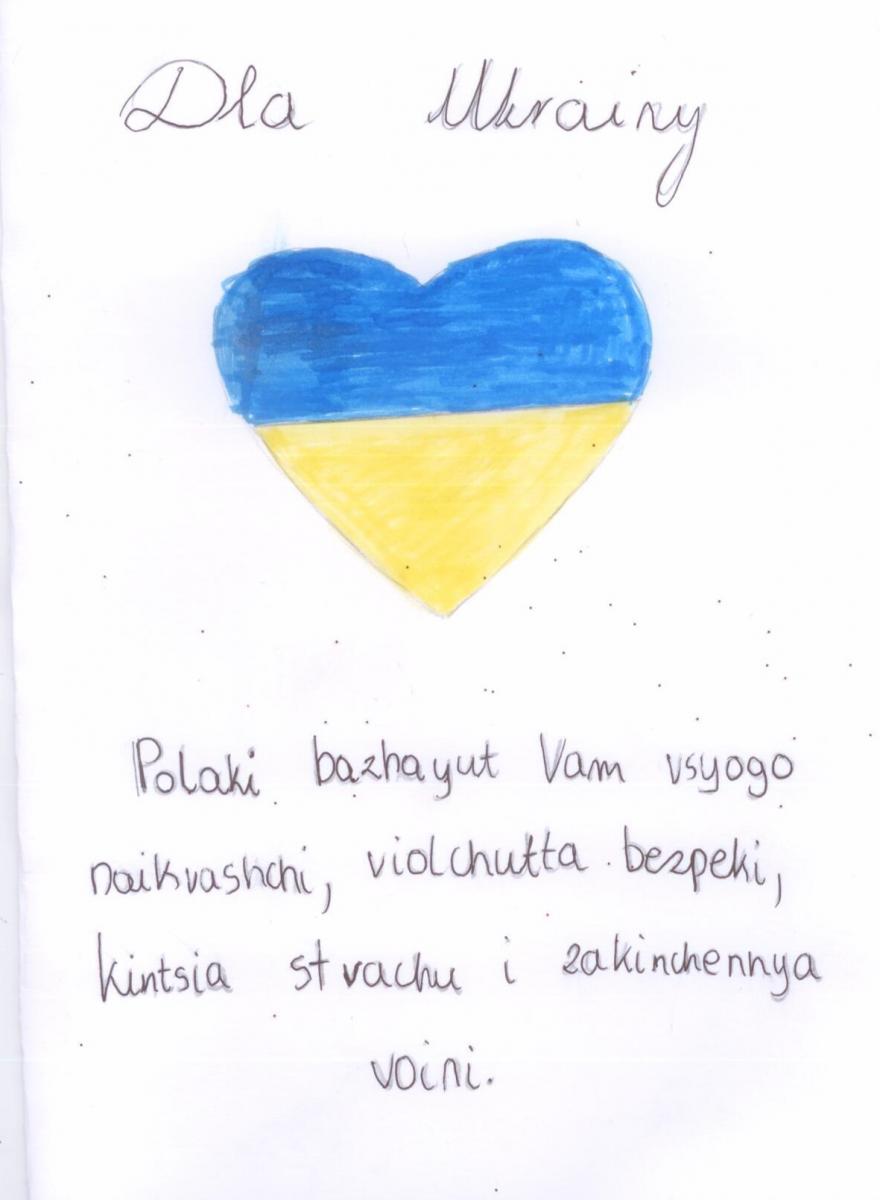 Dla Ukrainy
Polaki bazhayut Vam vsyogo
naikvashchi, violchutta bezpeki,
kintsia strachu i zakinchennya
voini.